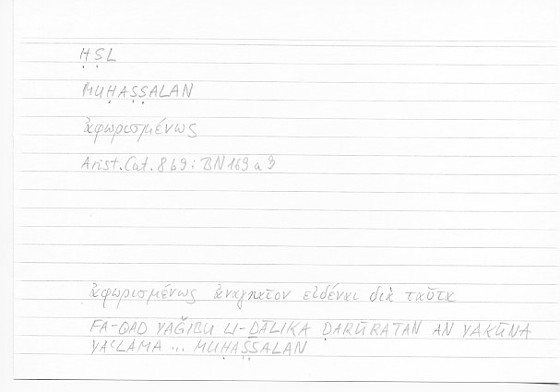 ḤṢL
MUḤAṢṢALAN
ἀφωρισμένως
Arist. Cat. 8b9: BN 169a9
ἀφωρισμένως ἀναγκαῖον εἰδέναι διὰ ταῦτα
FA-QAD YAǦIBU LI-ḎĀLIKA ḌARŪRATAN AN YAKŪNA
YAʿLAMA ... MUḤAṢṢALAN